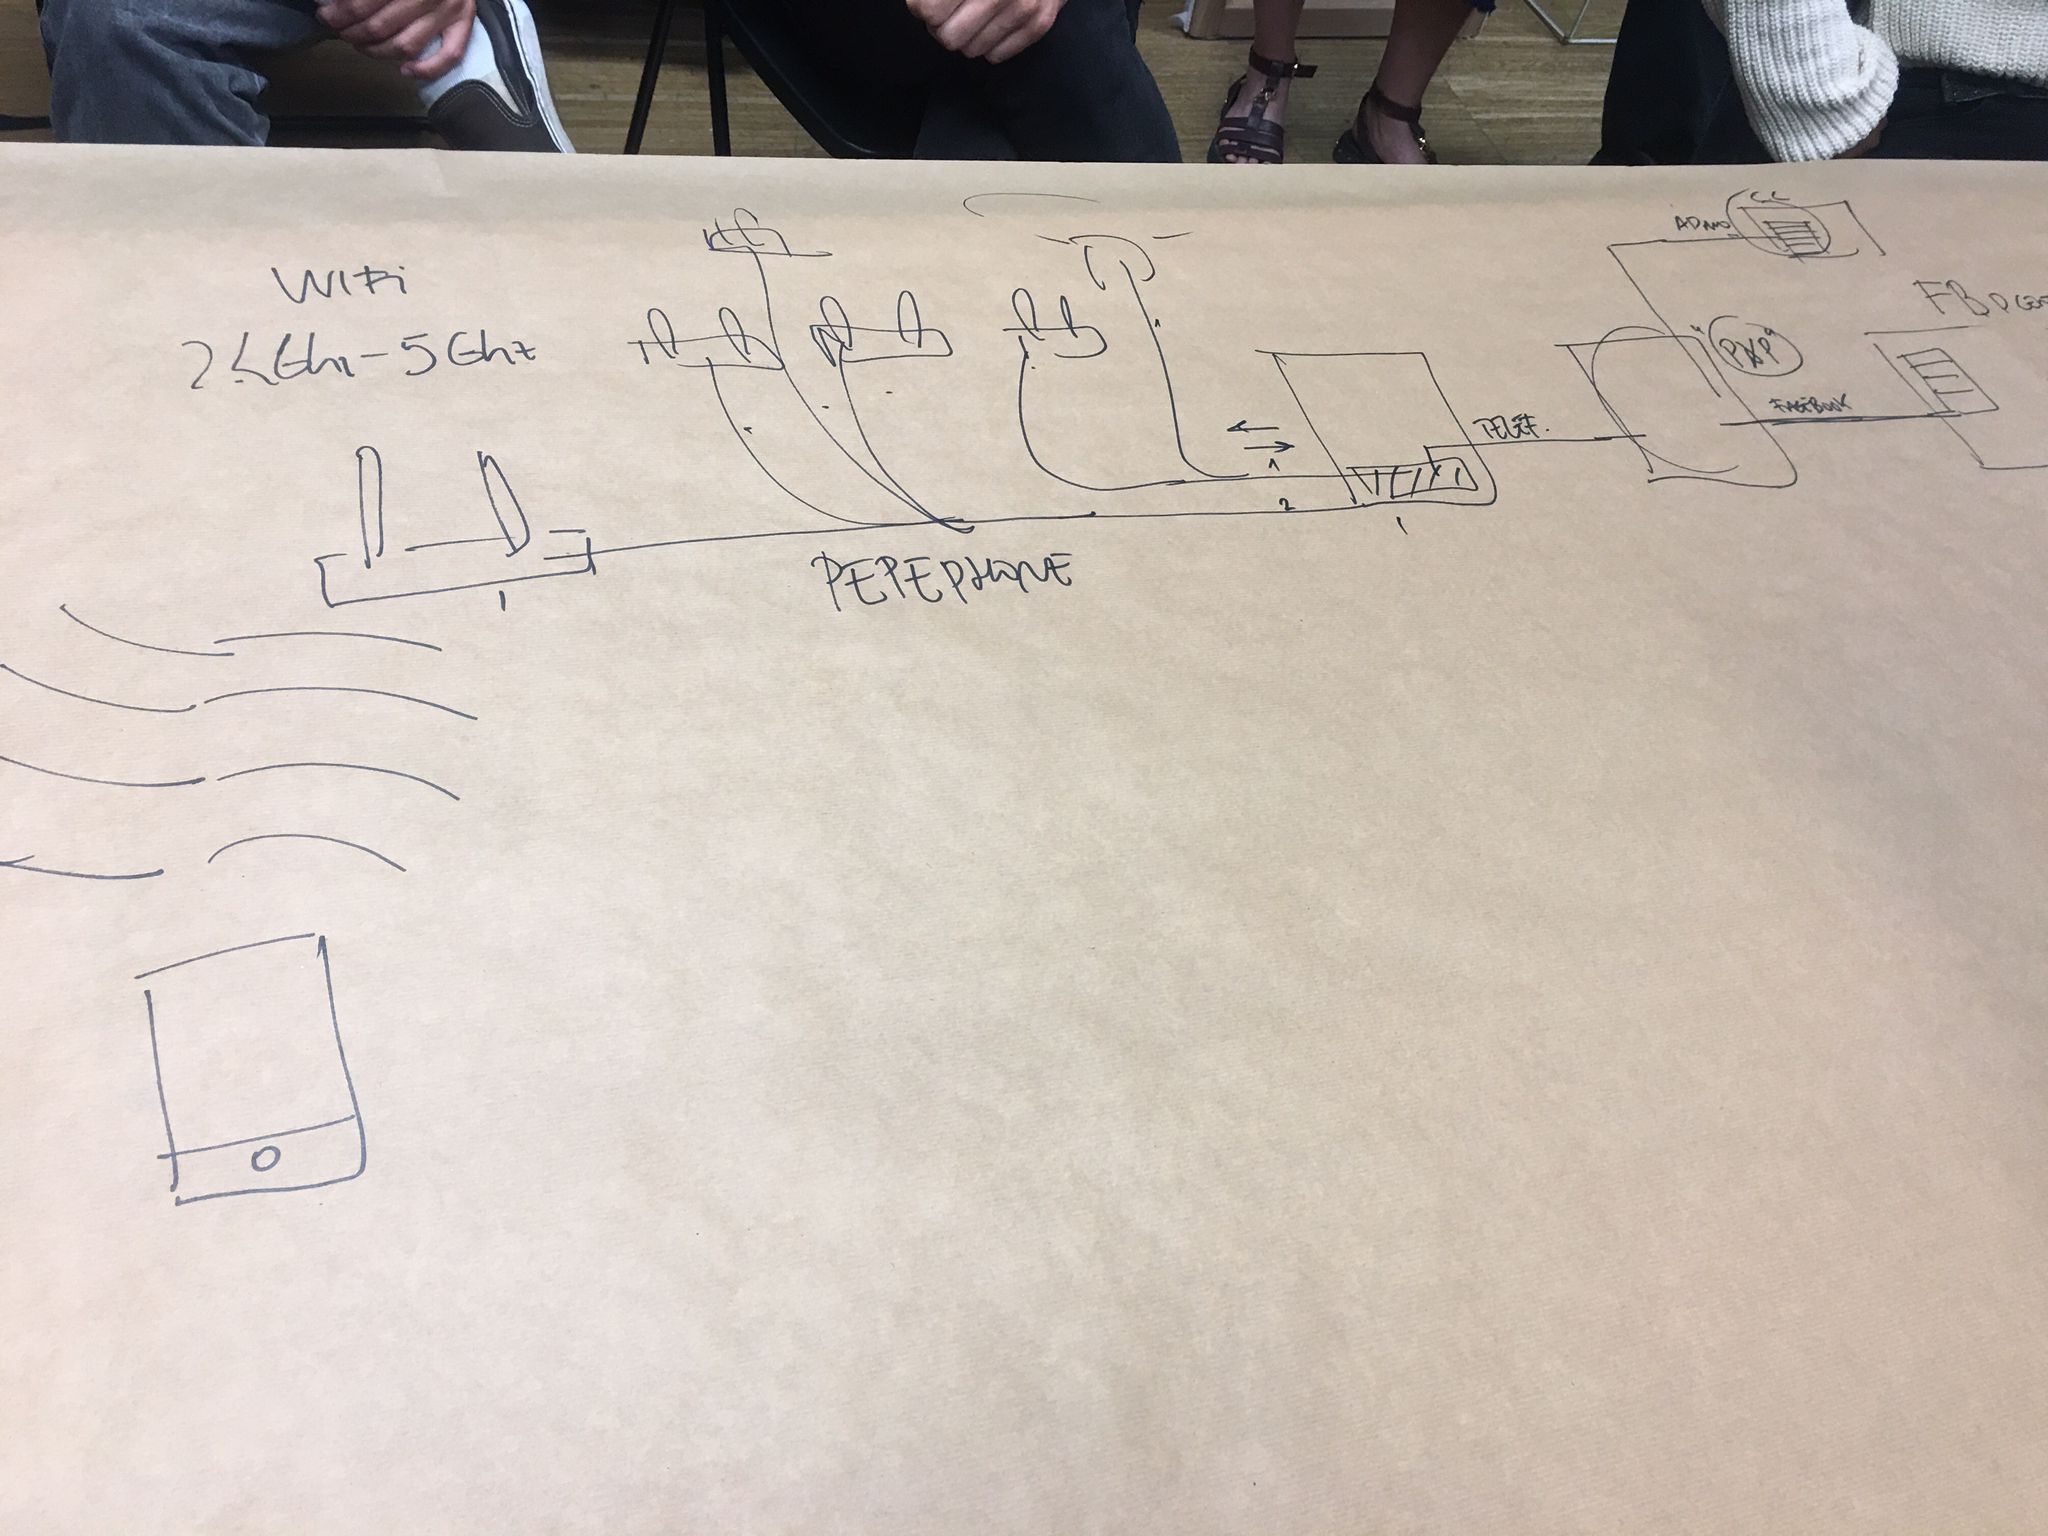 WIFi
2.4Ghz-5Ghz
PEPEPHONE
1
1
2
1
TELEF.
ADAMO
"PXP"
FACEBOOK